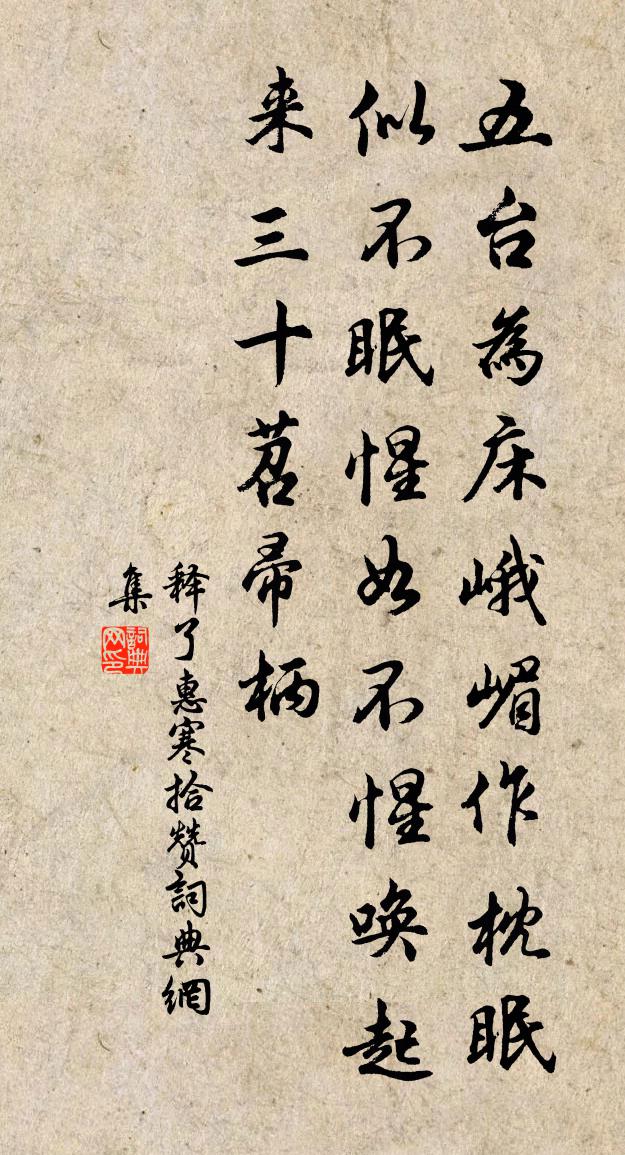 五台為床峨嵋作枕眠
似不眠惺如不惺喚起
来三十苕帚柄
释了惠寒拾赞詞典網
集
詞典网印